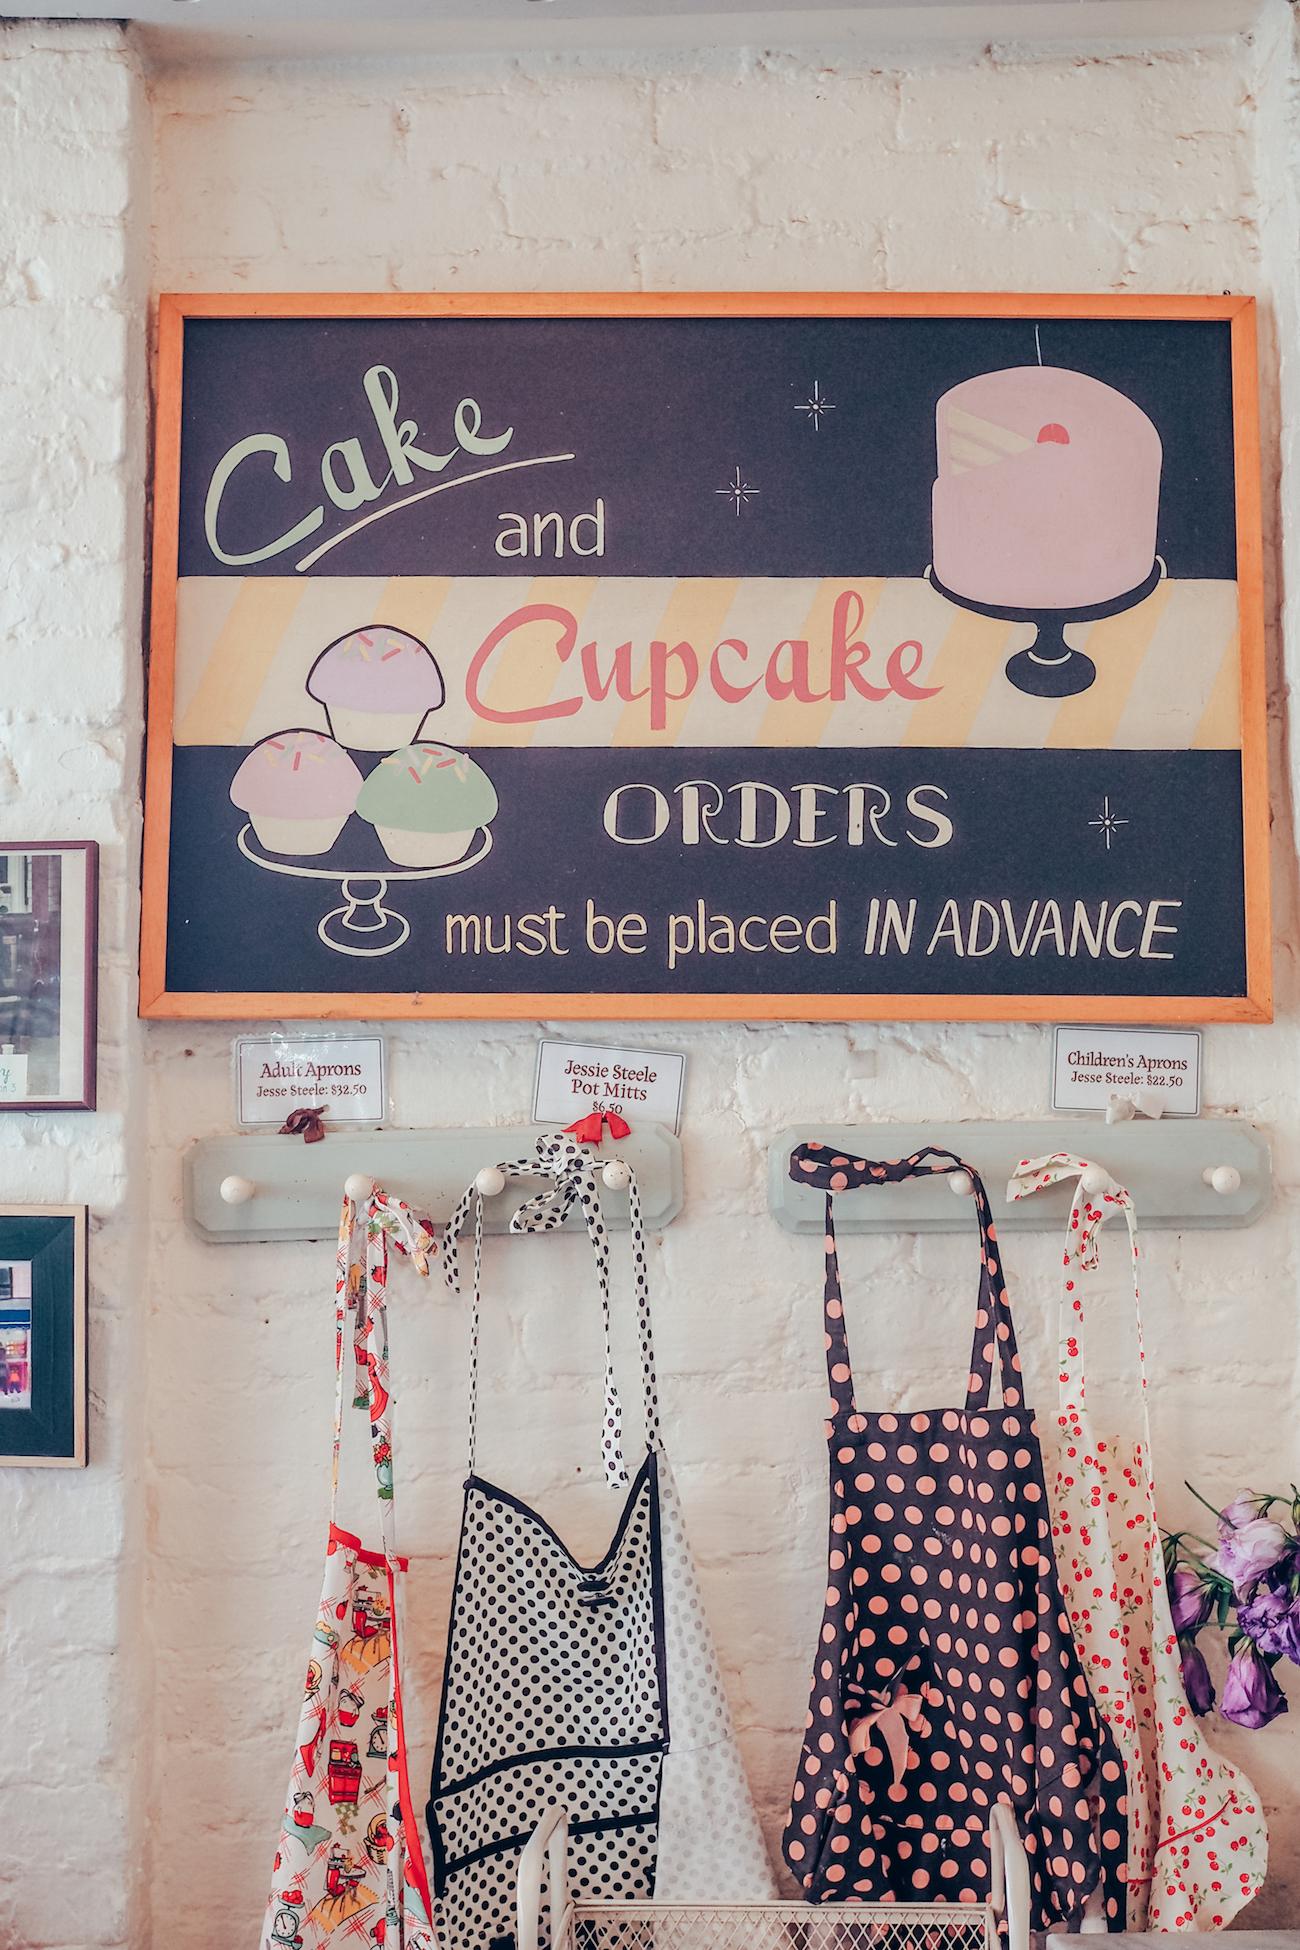 Cake
and
Cupcake
ORDERS
must be placed IN ADVANCE
Adult Aprons
Jesse Steele: $32.50
Jessie Steele
Pot Mitts
$6.50
Children's Aprons
Jesse Steele: $22.50